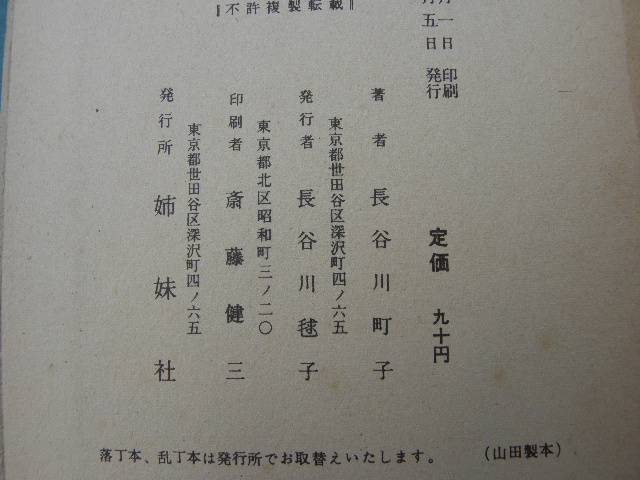 月一日 印刷
月五日 発行
定価 九十円
著者 長谷川町子
東京都世田谷区深沢町四ノ六五
発行者 長谷川毬子
東京都北区昭和町三ノ二〇
印刷者 斎藤健三
東京都世田谷区深沢町四ノ六五
発行所 姉妹社
『不許複製転載』
落丁本、乱丁本は発行所でお取替えいたします。
(山田製本)